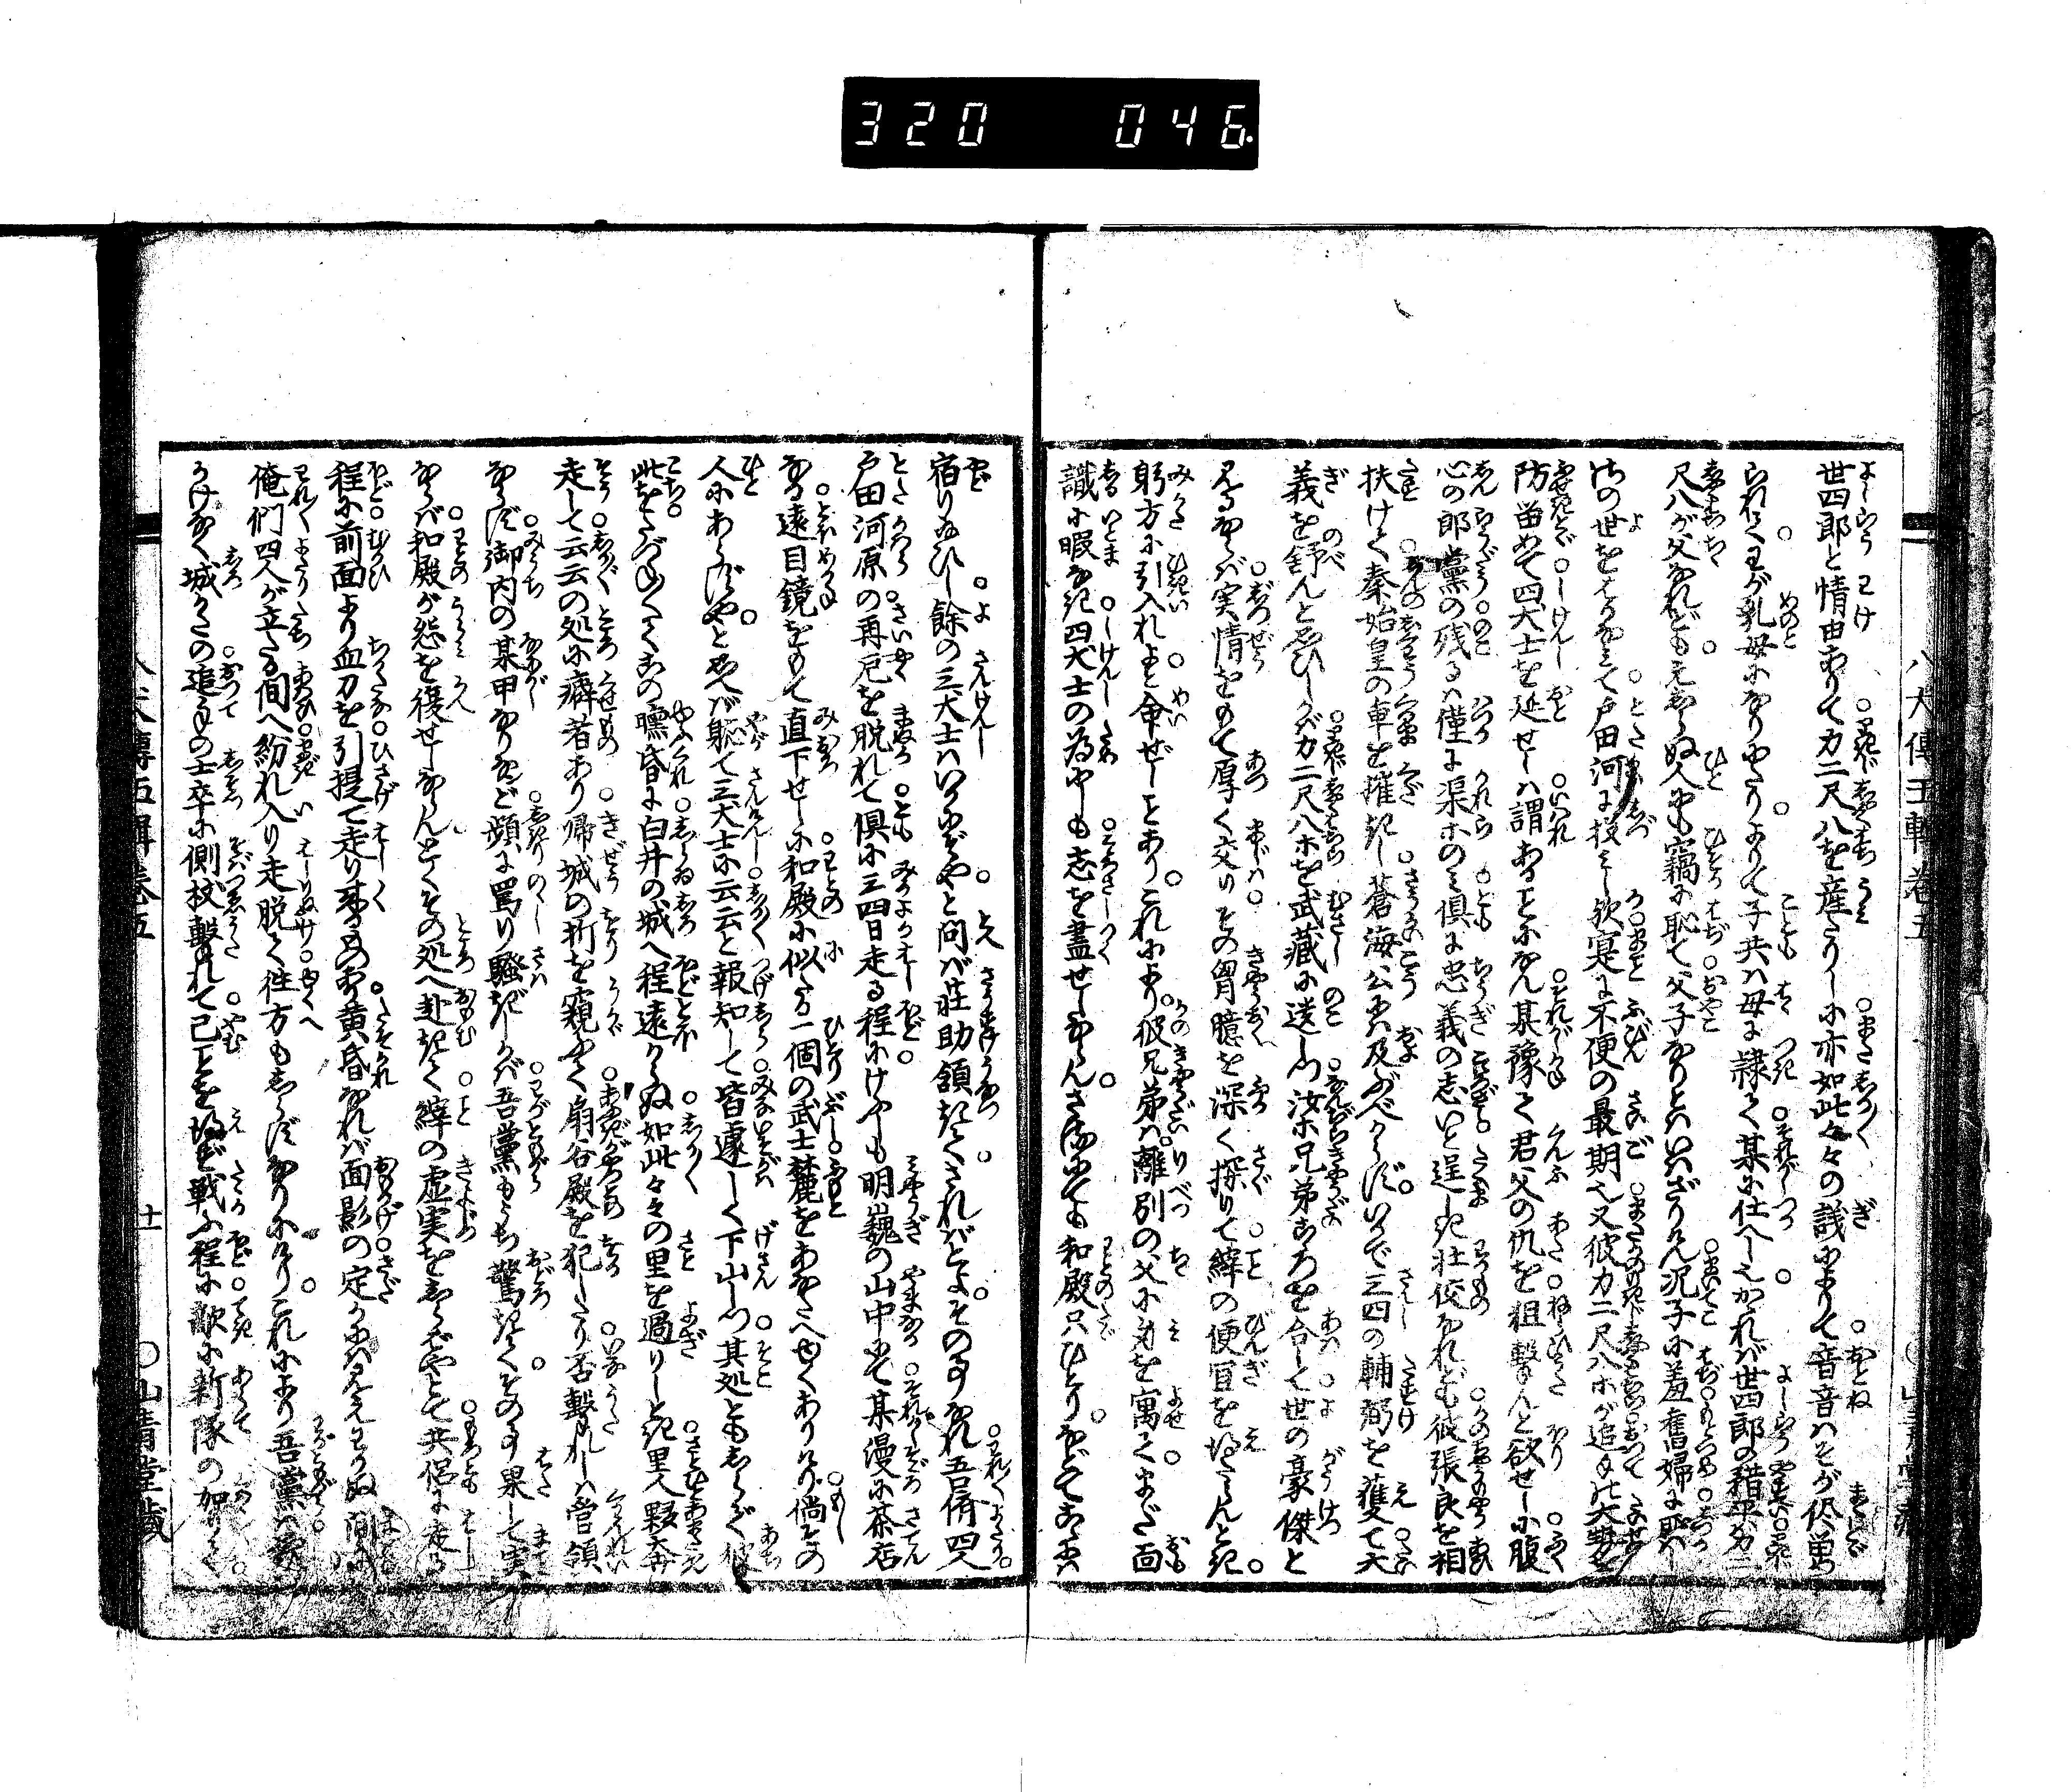 320 046
八犬傳五輯卷五
世四郎と情由ありて力二尺八を産たりしに亦如此々々の議によりて音音はそが侭曽
られてわが乳母になりにたりよりて子共は母に隷て某に仕へしかれば世四郎の猎平が二
尺八が父なれども元しらぬ人にも竊に恥て父子なりとはいはざりけん況子に羞舊婦に
はの世をはかなみて戸田河に投みし歟寔に不便の最期也又彼力二尺八ホが追手の大勢を
防畄めて四犬士を延せしは謂あることになん某豫て君父の仇を狙撃んと欲せしに腹
心の郎黨の残るは僅に渠ホのみ倶に忠義の志いと逞しき壮佼なれども彼張良を相
扶けて秦始皇の車を摧きし蒼海公には及ぶべからずいかで三四の輔弼を獲て大
義を舒んと思ひしかば力二尺八ホを武藏に遺しつ汝ホ兄弟こゝろを合して世の豪傑と
見るならば実情をもて厚く交りその胷臆を深く探りて縡の便宜を得たらんとき
躬方に引入れよと命ぜしことありこれにより彼兄弟は離別の父に身を寓てまだ面
識に暇なき四犬士の為にしも志を盡せしならんさるにても和殿只ひとりなどてこゝには
宿り給ひし餘の三犬士はいかにぞやと問ば荘助領きてさればとよその事なれ吾儕四人
戸田河原の再厄を脱れて倶に三四日走る程にけやも明巍の山中にて某漫に茶店
なる遠目鏡をもて直下せしに和殿に似たる一個の武士麓をあなたへゆくありけり倘その
人にあらずやと思へば軈て三犬士に云云と報知して皆遽しく下山しつ其処ともしらず彼
此をたづねしにこの曛昏に白井の城へ程遠からぬ如此々々の里を過りしとき里人夥奔
走して云云の処に癖者あり帰城の折を窺ふて扇谷殿を犯したり否撃れしは管領
ならず御内の某甲なりなど頻に罵り騒ぎしかば吾黨もうち驚きてその事果して実
ならば和殿が怨を復せしならんとてその処へ赴きて縡の虚実をしらばやとて共侶に走る
程に前面より血刀を引提て走り来るものあり黄昏なれば面影の定かには見えわかぬ
俺們四人が立たる間へ紛れ入り走脱て徃方もしらずなりにけりこれにより吾黨は
かけなく城かたの追手の士卒に側杖撃れて已ことを得ず戦ふ程に敵に新隊の加りて
八犬傳五輯卷五
十一
○山青堂藏